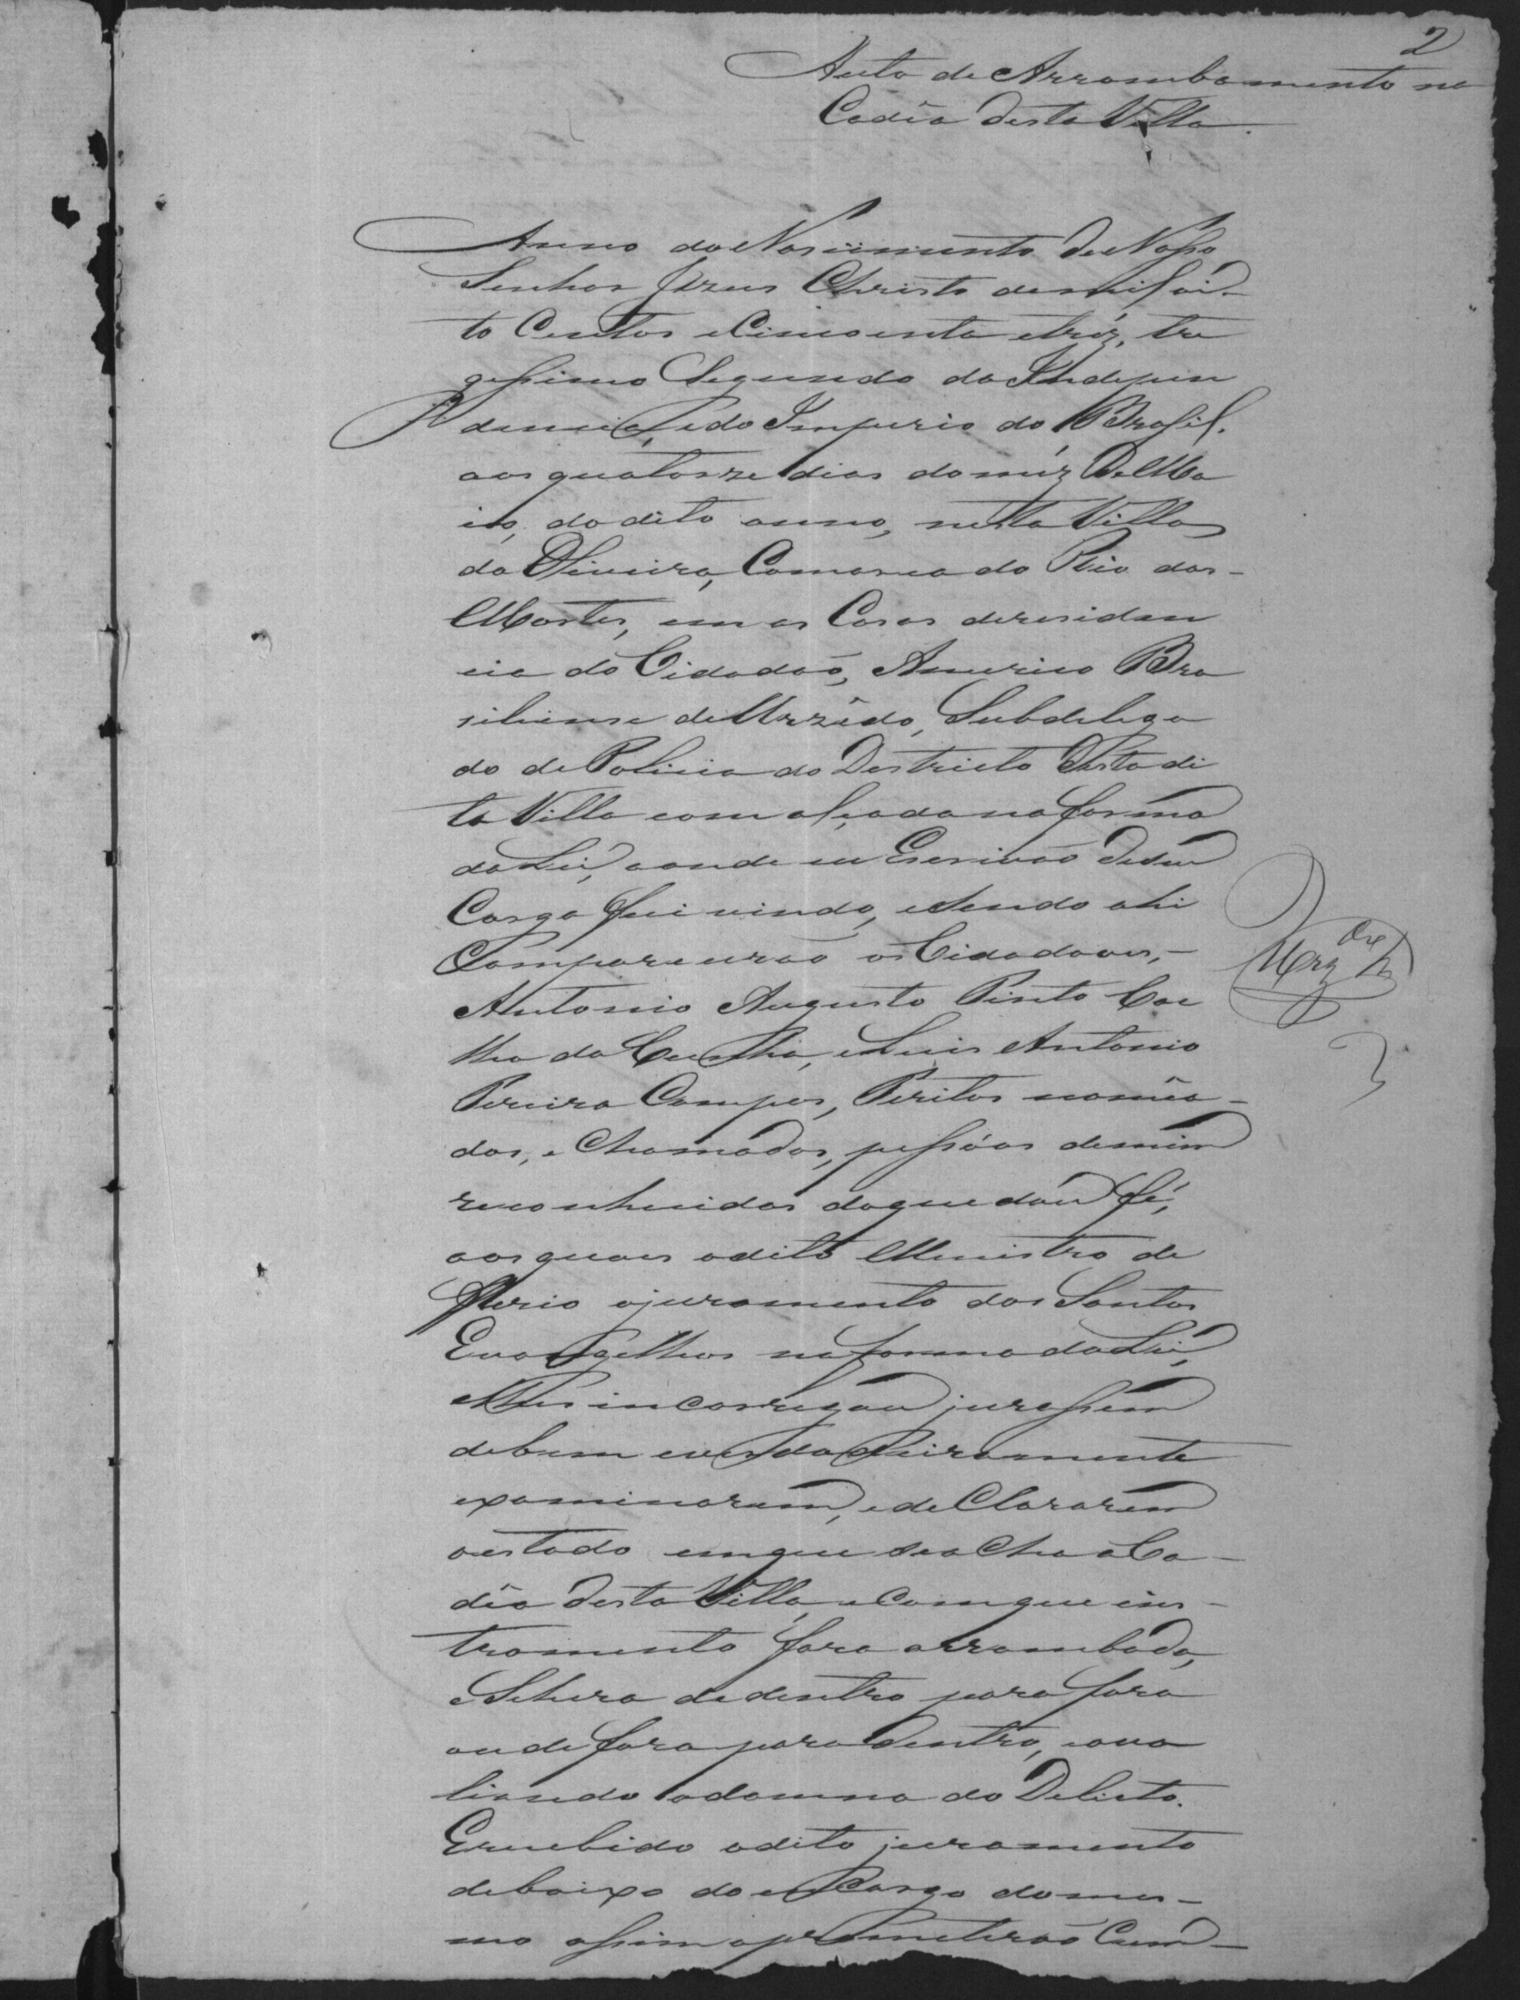 2
Auto de Arrombamento na
Cadêa desta Villa.
Anno do Nascimento de Nosso
Senhor Jezus Christo de mil oi-
to Centos e Cincoenta e trez, tre
gessimo Segundo da Indepen
dencia, e do Imperio do Brasil.
aos quatorze dias do mez de Ma
io, do dito anno, nesta Villa
da Oliveira, Comarca do Rio das-
Mortes, em as Casas de residen
cia do Cidadão, Americo Bra
siliense de Urzêdo, Subdelega
do de Policia do Destricto desta di
ta Villa com alçada na forma
da Lei, aonde eu Escrivão de seu
Cargo fui vindo, e sendo ahi
Comparecerão os Cidadaons,-
Antonio Augusto Pinto Coe
lho da Cunha, e Luis Antonio
Pereira Campos, Peritos nomêa-
dos, e Chamados, pessôas de mim
reconhecidas do que dou fé,
aos quaes o dito Menistro de
ferio o juramento dos Santos
Evangelhos na forma da Lei,
e lhes incarregou jurassem
de bem e verdadeiramente
examinarem, e de Clararem
o estado em que se acha a Ca-
dêa desta Villa, e com que ins-
tromento fora arrombada,
e Se hera de dentro para fora
ou de fora para dentro, e ava
liando o damno do Delicto.
E recebido o dito juramento
debaixo do en Cargo do mes-
mo assim o prometerão Cum-
Urz